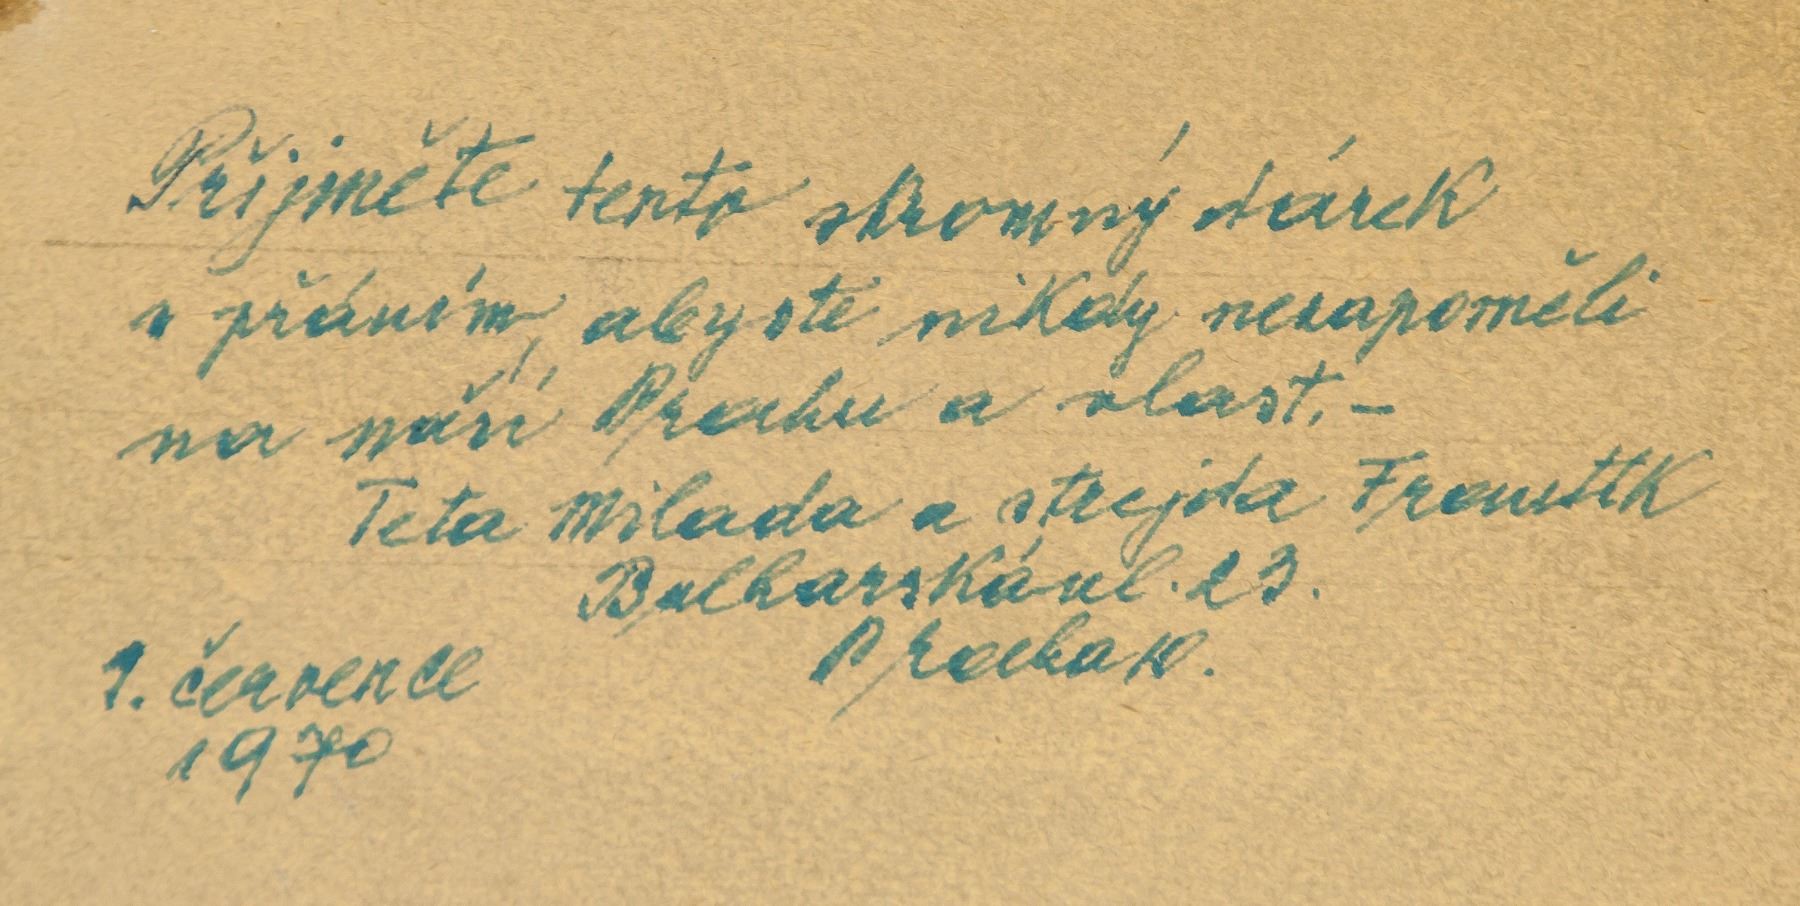 Přijměte tento skromný dárek
s přáním, abyste nikdy nezapoměli
na naší Prahu a vlast. –
Teta Milada a strejda
Bulharská ul. 23.
Praha 10.
1. července
1970